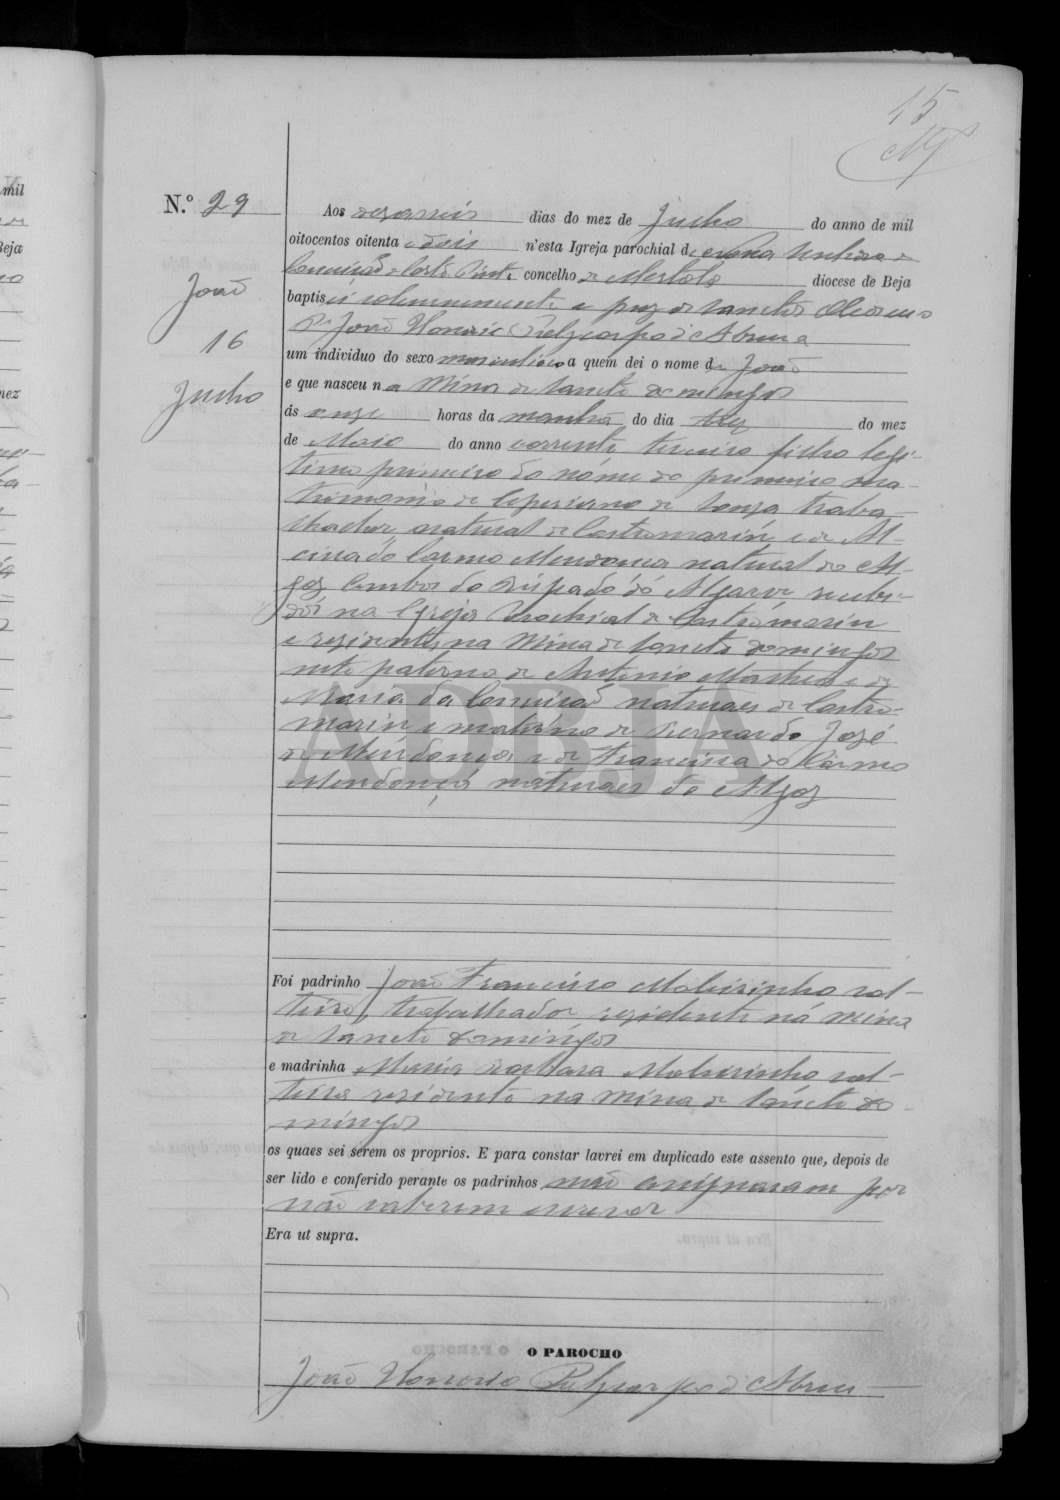 15
N.º 29
Aos dezaseis dias do mez de Junho do anno de mil
oitocentos oitenta e dois n'esta Igreja parochial de Nossa Senhora da
Conceição Corte Pinto concelho de Mertola diocese de Beja
João
16
Junho
baptisei solemnemente e puz os Sanctos Oleos eu o
P.e João Honorio Polycarpo d'Abreu a
um individuo do sexo masculino a quem dei o nome de João
e que nasceu na Mina de Sancto Domingos
ás onze horas da manhã do dia trez do mez
de Maio do anno corrente terceiro filho legi-
timo primeiro do nome do primeiro ma-
trimonio de Cypriano de Souza traba-
lhador natural de Castromarin e de Al-
do Carmo Mendonça natural do Al-
goz ambos do Bispado do Algarve recebi-
dos na Igreja Parochial de Castromarin
e residentes na Mina de Sancto Domingos
neto paterno de Antonio Martins e de
Maria da Conceição naturaes de Castro-
marin e materno de Bernardo José
de Mendonça e de Francisca do Carmo
Mendonça naturaes do Algoz
ADBJA
Foi padrinho João Francisco Malveirinho sol-
teiro, trabalhador residente na Mina
de Sancto Domingos
e madrinha Maria Barbara Malveirinho sol-
teira residente na Mina de Sancto Do-
mingos
os quaes sei serem os proprios. E para constar lavrei em duplicado este assento que, depois de
ser lido e conferido perante os padrinhos não assignaram por
não saberem escrever
Era ut supra.
O PAROCHO
João Honorio Polycarpo d'Abreu